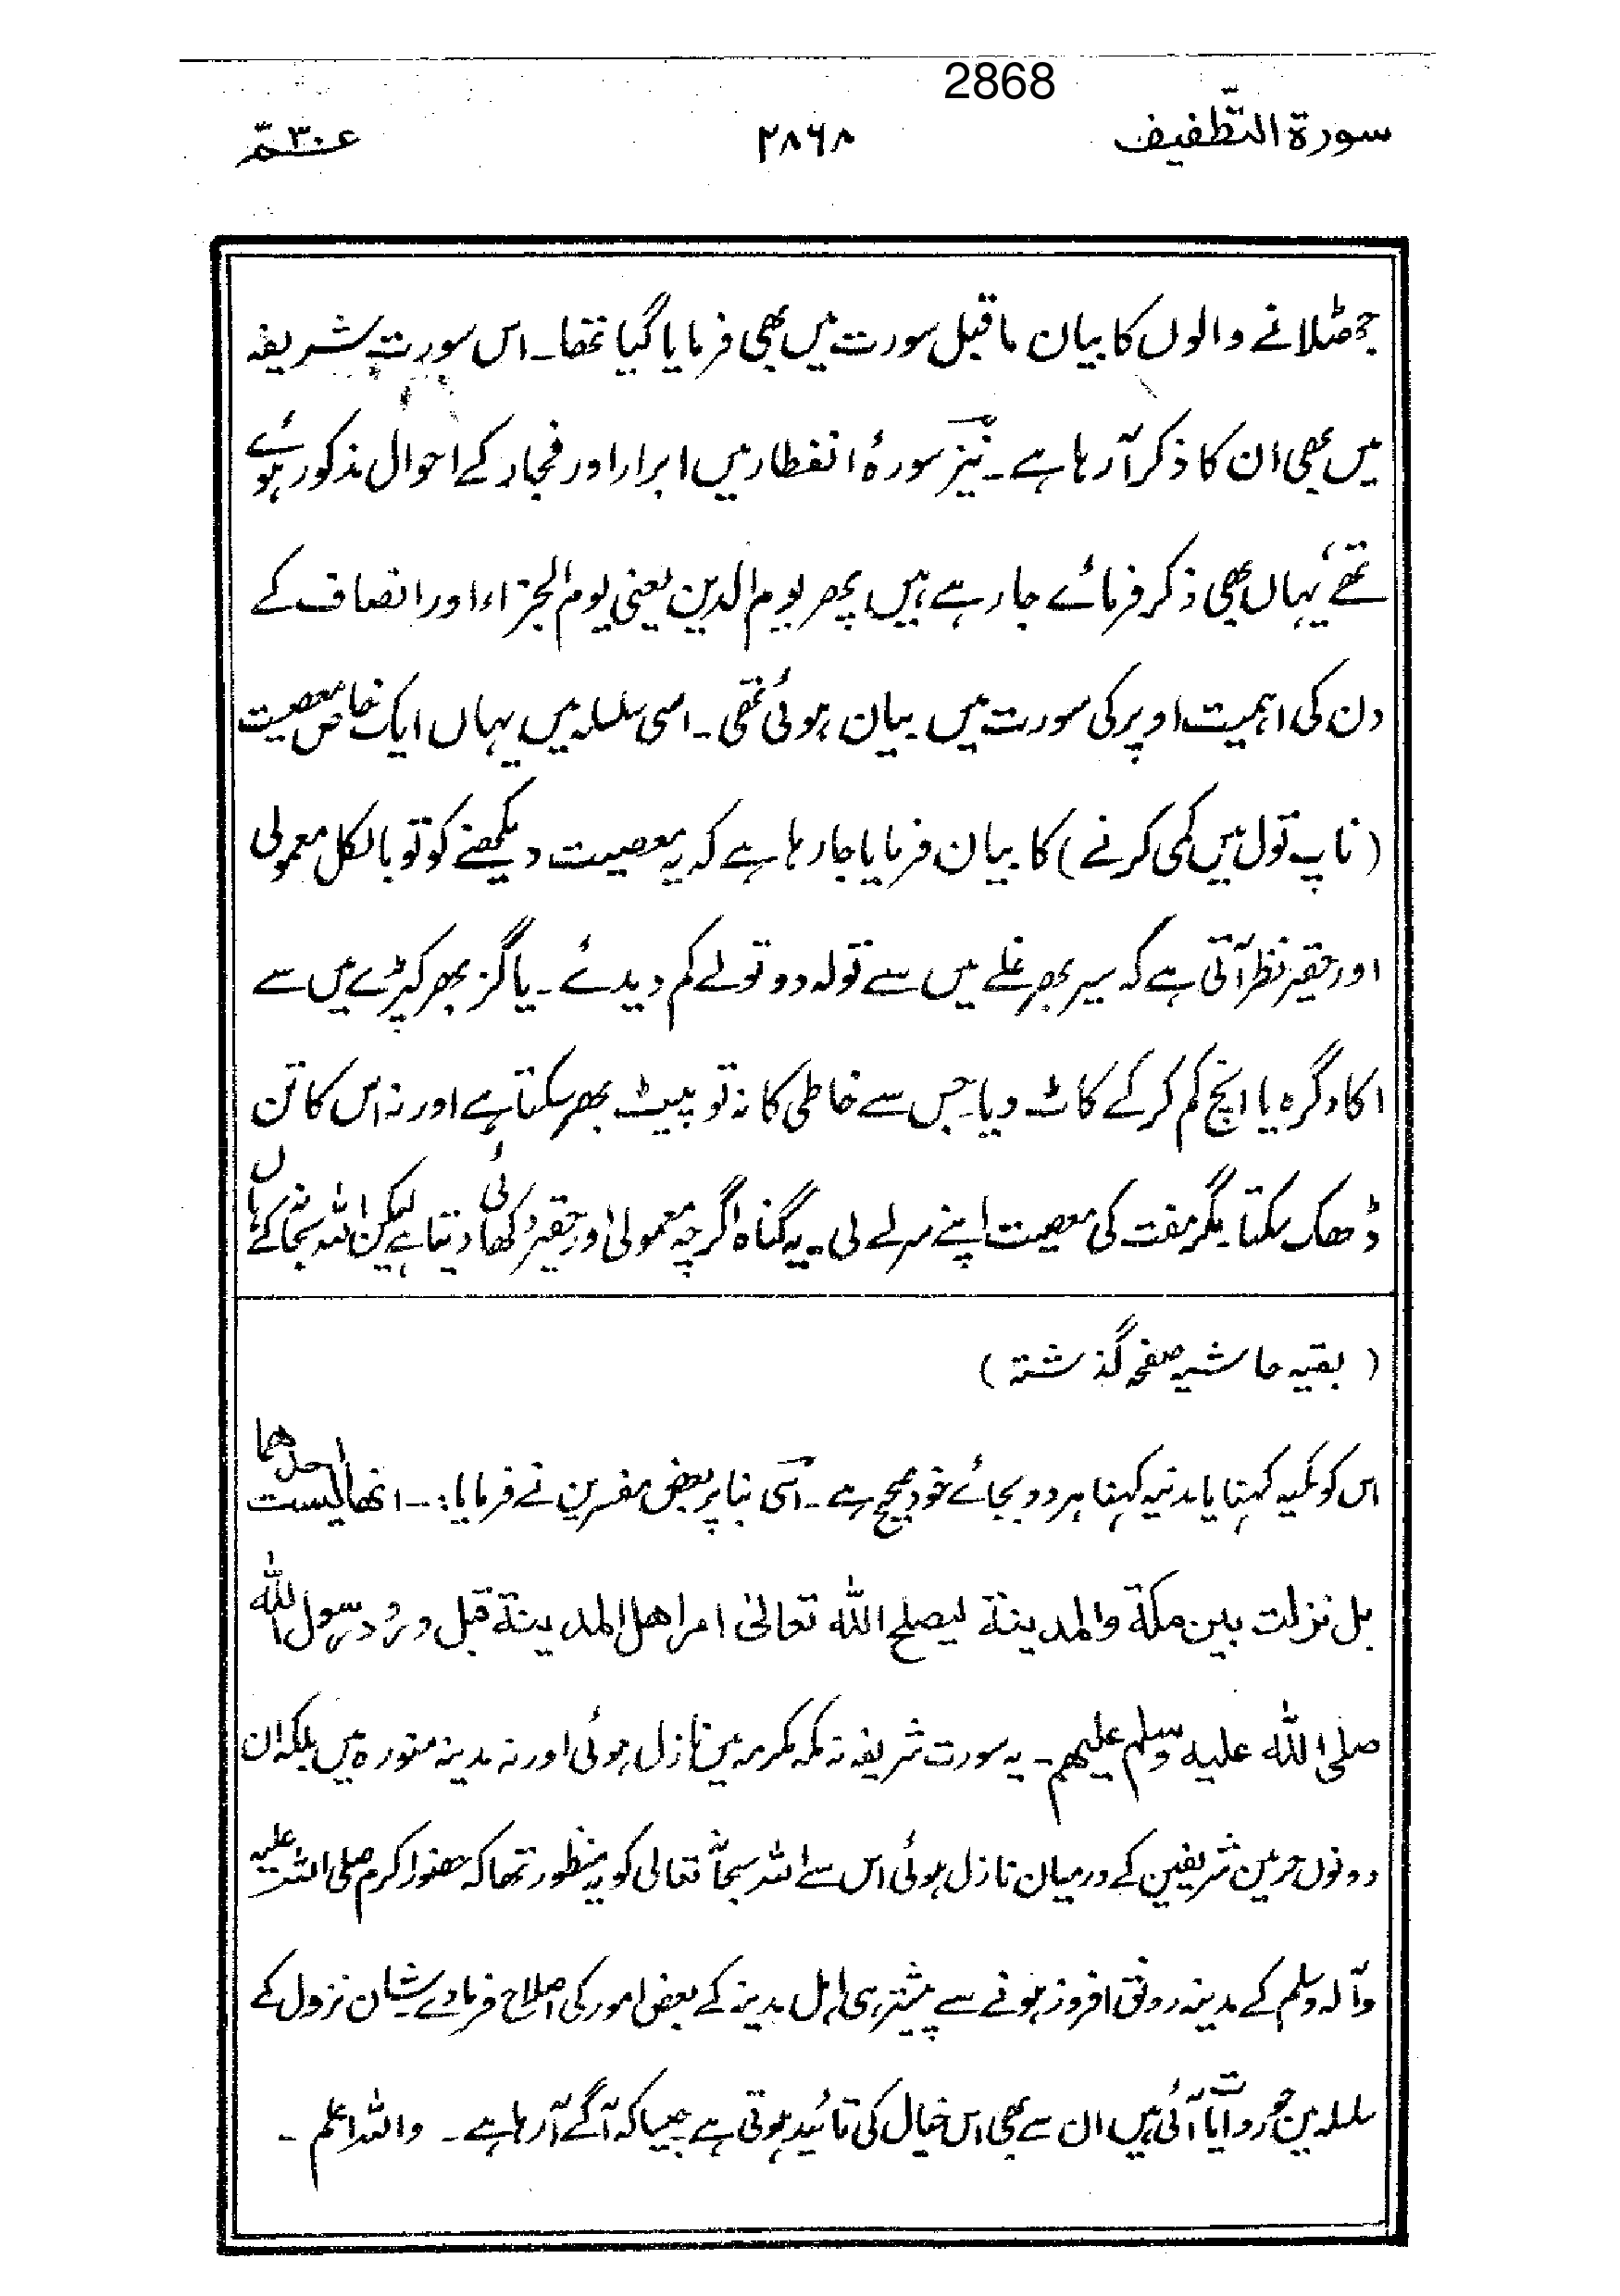 2868
سورة التّطفیف ۲۸۶۸ عمّ ۳۰
جھٹلانے والوں کا بیان ماقبل سورت میں بھی فرمایا گیا تھا۔ اس سورت شریفہ
میں بھی ان کا ذکر آرہا ہے۔ نیز سورۂ انفطار میں ابرار اور فجار کے احوال مذکور ہوئے
تھے، یہاں بھی ذکر فرمائے جارہے ہیں پھر یوم الدین یعنی یوم الجزاء اور انصاف کے
دن کی اہمیت اوپر کی سورت میں بیان ہوئی تھی۔ اسی سلسلہ میں یہاں ایک خاص معصیت
(ناپ تول میں کمی کرنے) کا بیان فرمایا جارہا ہے کہ یہ معصیت دیکھنے کو تو بالکل معمولی
اور حقیر نظر آتی ہے کہ سیر بھر غلے میں سے تولہ دو تولے کم دیدئے۔ یا گز بھر کپڑے میں سے
اکاد گرہ یا انچ کم کرکے کاٹ دیا۔ جس سے خاطی کا نہ تو پیٹ بھر سکتا ہے اور نہ اس کا تن
ڈھک سکتا۔ مگر مفت کی معصیت اپنے سر لے لی۔ یہ گناہ اگرچہ معمولی اور حقیر دکھائی دیتا ہے لیکن اللہ سبحانہٗ کے ہاں
(بقیہ حاشیہ صفحہ گذشتہ)
اس کو مکیہ کہنا یا مدنیہ کہنا ہر دو بجائے خود صحیح ہے۔ اسی بنا پر بعض مفسرین نے فرمایا:۔ انھا لیست احدھما
بل نزلت بین مکة والمدینة لیصلح اللہ تعالیٰ امر اھل المدینة قبل ورُود رسول اللہ
صلی اللہ علیہ وسلم علیھم۔ یہ سورت شریفہ نہ مکہ مکرمہ میں نازل ہوئی اور نہ مدینہ منورہ میں بلکہ ان
دونوں حرمین شریفین کے درمیان نازل ہوئی اس سے اللہ سبحانہٗ تعالی کو یہ منظور تھا کہ حضور اکرم صلی اللہ علیہ
وآلہ وسلم کے مدینہ رونق افروز ہونے سے پیشتر ہی اہل مدینہ کے بعض امور کی اصلاح فرمادے۔ شان نزول کے
سلسلہ میں جو روایات آئی ہیں ان سے بھی اس خیال کی تائید ہوتی ہے جیسا کہ آگے آرہا ہے۔ واللہ اعلم۔